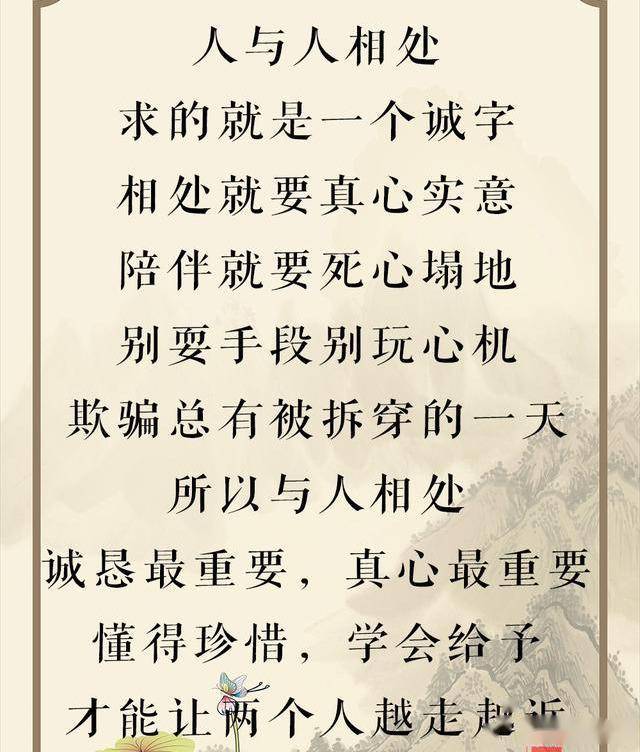 人与人相处
求的就是一个诚字
相处就要真心实意
陪伴就要死心塌地
别耍手段别玩心机
欺骗总有被拆穿的一天
所以与人相处
诚恳最重要，真心最重要
懂得珍惜，学会给予
才能让两个人越走越近